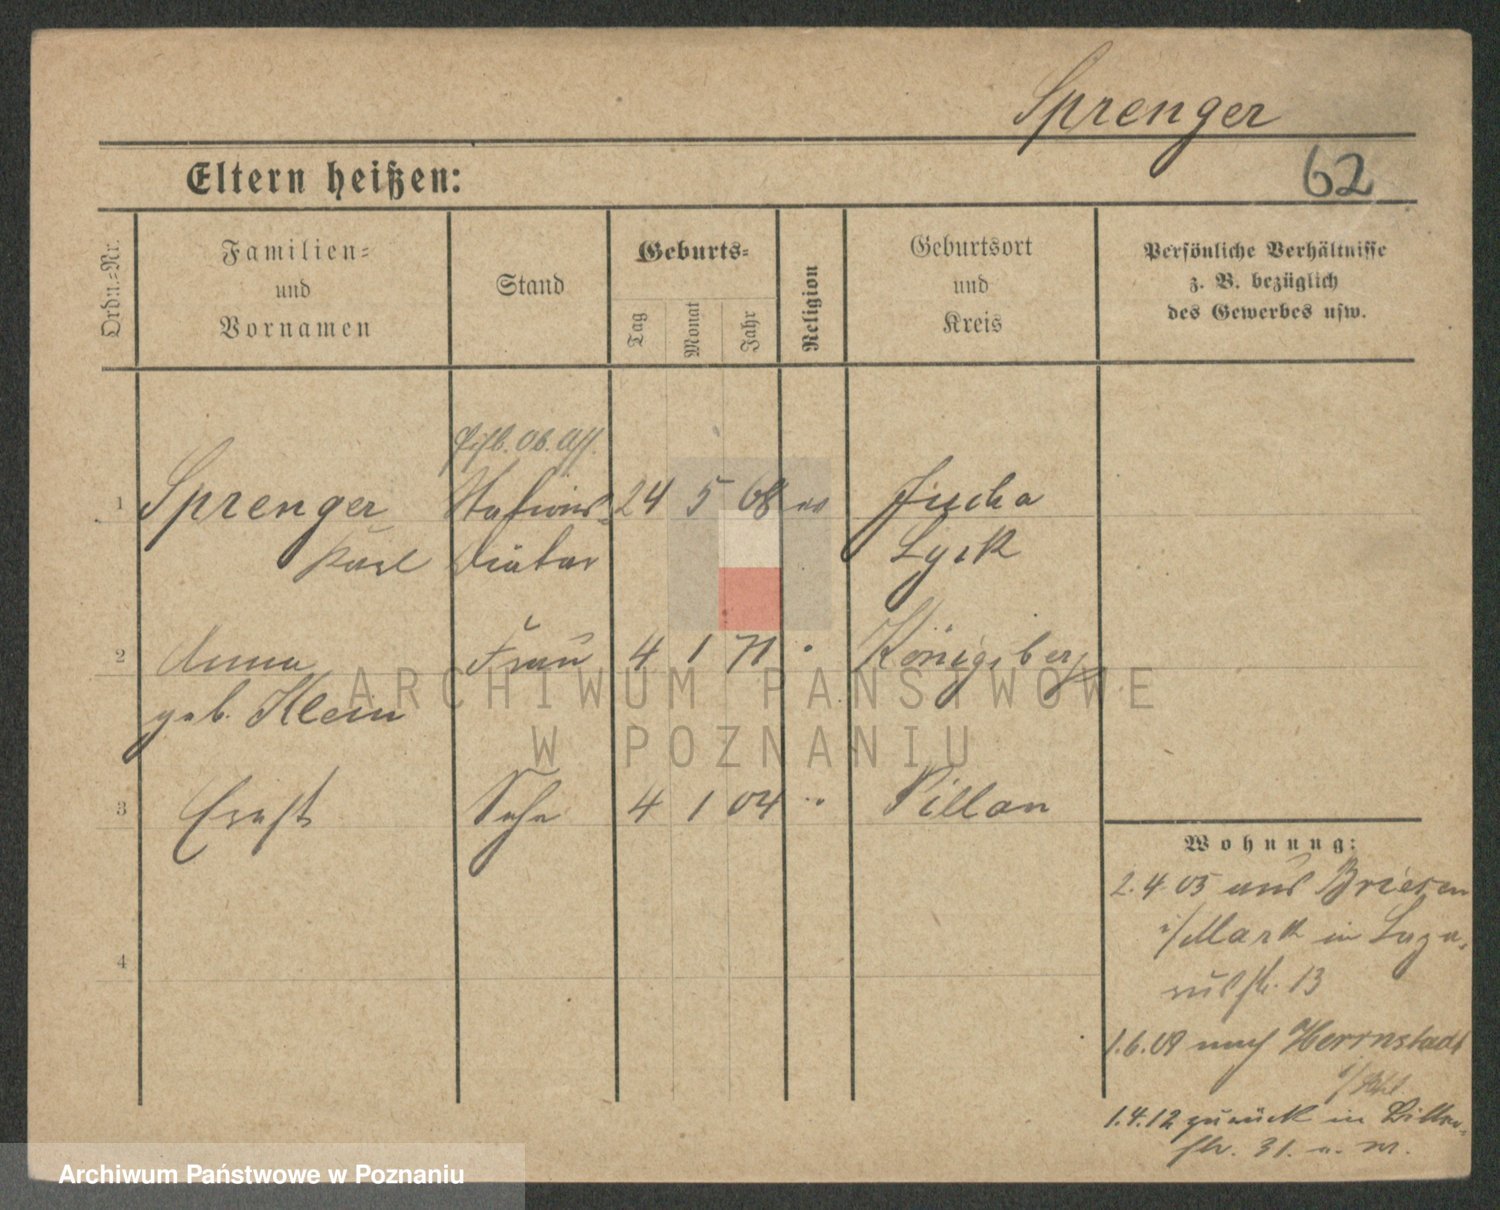 Sprenger
Eltern heißen:
62
Ordn.-Nr.
Familien-
und
Vornamen
Stand
Geburts-
Tag
Monat
Jahr
Religion
Geburtsort
und
Kreis
Persönliche Verhältnisse
z. B. bezüglich
des Gewerbes usw.
1 Sprenger Stations- 24 5 68 Jucha
Karl Diätar Lyck
2 Anna Frau 4 1 71 " Königsberg
geb. Klein
ARCHIWUM PAŃSTWOWE
W POZNANIU
3 Ernst Sohn 4 1 04 " Pillau
4
Wohnung:
2.4.05 aus Briesen
i/Mark in Laza-
russtr. 13
1.6.09 nach Herrnstadt
1.4.12 zurück in
str. 31.
Archiwum Państwowe w Poznaniu